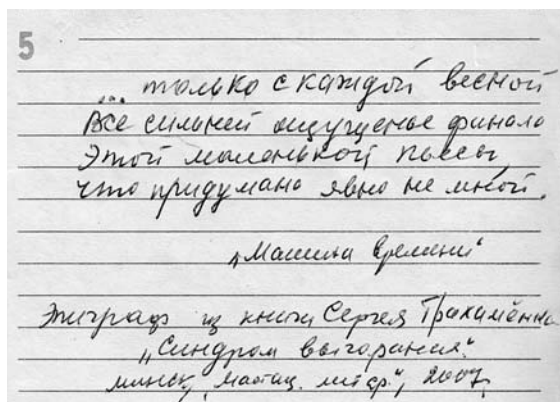 5
... только с каждой весной
Все сильней ощущенье финала
Этой маленькой пьесы,
что придумана явно не мной.
"Машина времени"
Эпиграф из книги Сергея Трахимёнка
"Синдром выгорания".
Минск, "Мастац. літ-ра", 2007.